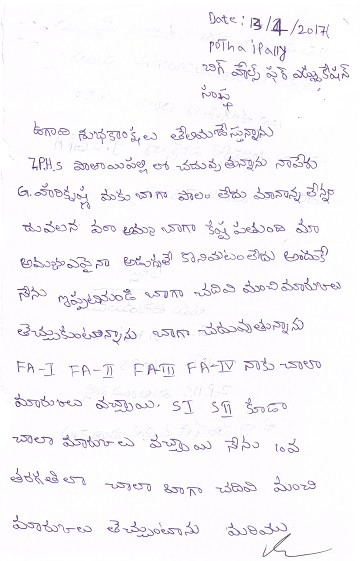 Date: 13/4/2017
pothaipally
బిగ్ హెల్ప్ ఫర్ ఎడ్యుకేషన్
సంస్థ
ఉగాది శుభకాంక్షలు తెలియజేస్తున్నాను
Z.P.H.S పోతాయిపల్లి లో చదువుతున్నాను నాపేరు
G. హరికృష్ణ మకు బాగా పొలం లేదు మానాన్న లేన్నం
దువలన మా అమ్మ బాగా కష్ట పడుతుంది మా
అమ్మను ఎవైనా అడుగుతే కొనివటం లేదు అందుకే
నేను ఇప్పటినుండి బాగా చదివి మంచి మారుకులు
తెచ్చుకుంటున్నాను బాగా చదువుతున్నాను
FA-I FA-II FA-III FA-IV నాకు చాలా
మారుకులు వచ్చాయి. SI SII కూడా
చాలా మారుకులు వచ్చాయి నేను 10వ
తరగతిలా చాలా బాగా చదివి మంచి
మారుకులు తెచ్చుంటాను మరియు